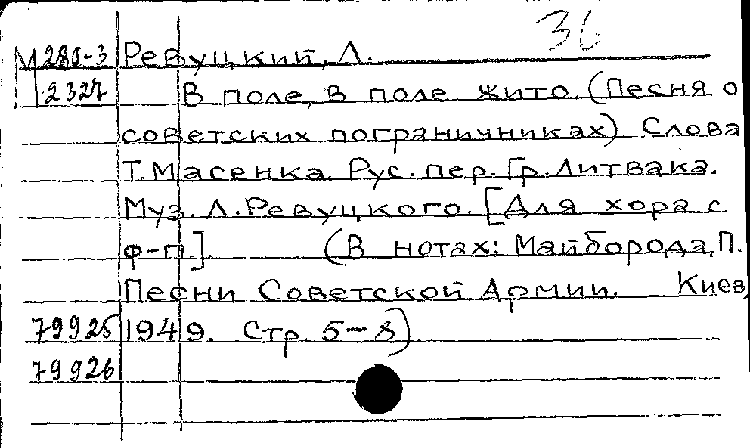 36
М 280-3 Ревуцкий, Л.
2327 В поле, в поле жито. (Песня о
советских пограничниках) Слова
Т. Масенка. Рус. пер. Гр. Литвака.
Муз. Л. Ревуцкого. [Для хора с
ф-п]. (В нотах: Майборода, П.
Песни Советской Армии. Киев,
79925 1949. Стр. 5-8)
79926